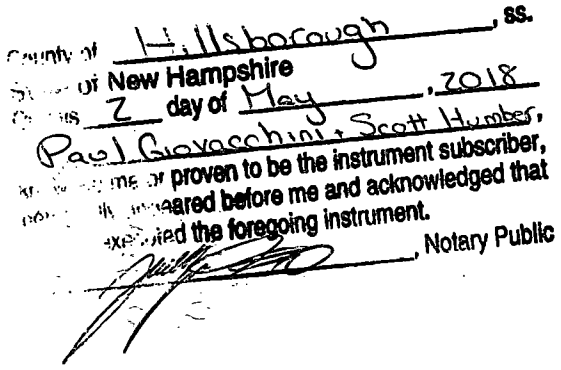 County of Hillsborough, ss.
State of New Hampshire
On this 2 day of May, 2018
Paul Giovacchini + Scott Humber,
known to me or proven to be the instrument subscriber,
personally appeared before me and acknowledged that
executed the foregoing instrument.
, Notary Public